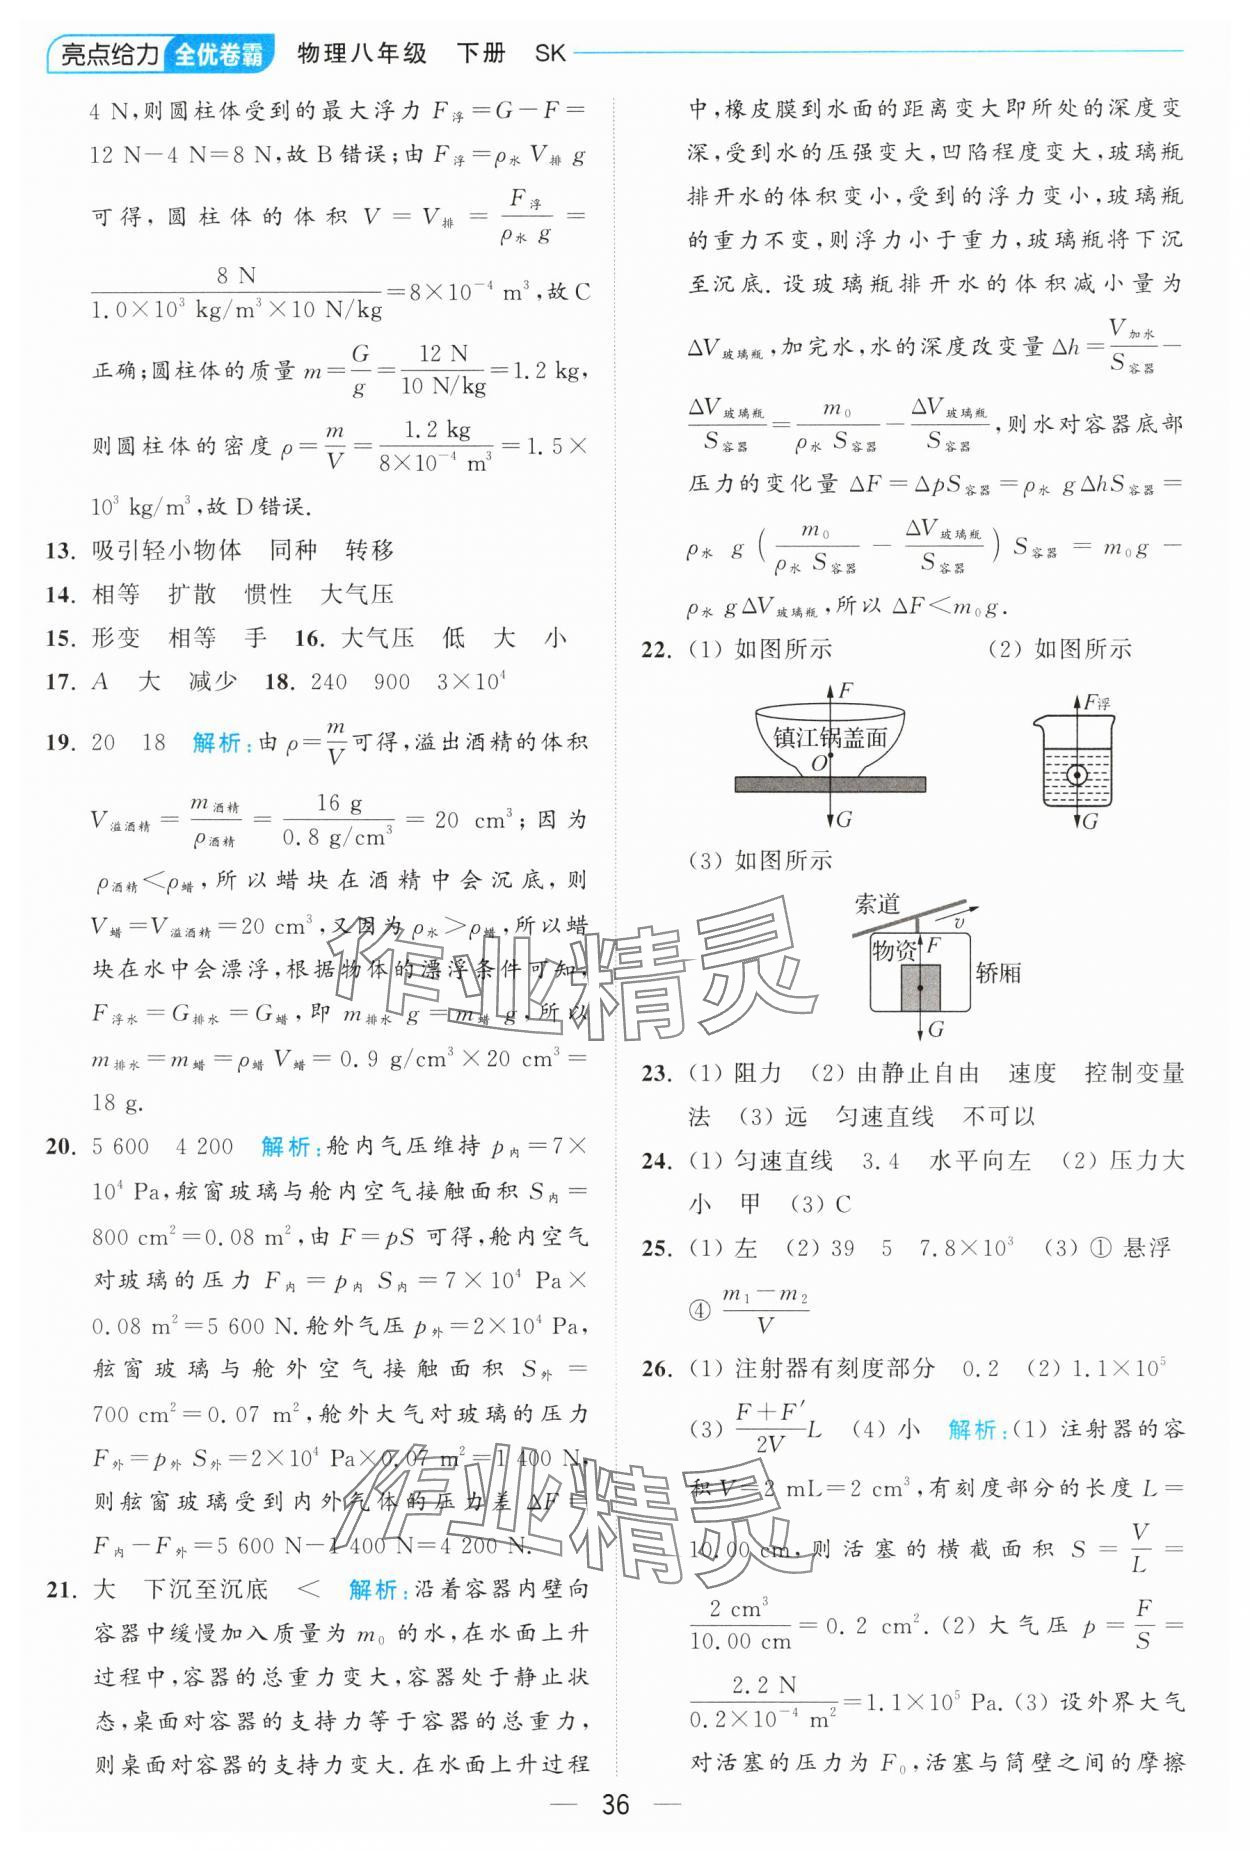 亮点给力 全优卷霸 物理八年级 下册 SK
4 N,则圆柱体受到的最大浮力 F浮=G-F=
12 N-4 N=8 N,故 B 错误;由 F浮=ρ水 V排 g
可得, 圆柱体的体积 V = V排 = F浮/(ρ水 g) =
8 N/(1.0×10³ kg/m³×10 N/kg)=8×10⁻⁴ m³,故 C
正确;圆柱体的质量 m=G/g=12 N/(10 N/kg)=1.2 kg,
则圆柱体的密度 ρ=m/V=1.2 kg/(8×10⁻⁴ m³)=1.5×
10³ kg/m³,故 D 错误.
13. 吸引轻小物体 同种 转移
14. 相等 扩散 惯性 大气压
15. 形变 相等 手 16. 大气压 低 大 小
17. A 大 减少 18. 240 900 3×10⁴
19. 20 18 解析:由 ρ=m/V可得,溢出酒精的体积
V溢酒精=m酒精/ρ酒精=16 g/(0.8 g/cm³)=20 cm³;因为
ρ酒精<ρ蜡,所以蜡块在酒精中会沉底,则
V蜡=V溢酒精=20 cm³,又因为 ρ水>ρ蜡,所以蜡
块在水中会漂浮,根据物体的漂浮条件可知,
F浮水=G排水=G蜡,即 m排水 g=m蜡 g,所以
m排水=m蜡=ρ蜡 V蜡=0.9 g/cm³×20 cm³=
18 g.
20. 5 600 4 200 解析:舱内气压维持 p内=7×
10⁴ Pa,舷窗玻璃与舱内空气接触面积 S内=
800 cm²=0.08 m²,由 F=pS 可得,舱内空气
对玻璃的压力 F内=p内 S内=7×10⁴ Pa×
0.08 m²=5 600 N.舱外气压 p外=2×10⁴ Pa,
舷窗玻璃与舱外空气接触面积 S外=
700 cm²=0.07 m²,舱外大气对玻璃的压力
F外=p外 S外=2×10⁴ Pa×0.07 m²=1 400 N,
则舷窗玻璃受到内外气体的压力差 ΔF=
F内-F外=5 600 N-1 400 N=4 200 N.
21. 大 下沉至沉底 < 解析:沿着容器内壁向
容器中缓慢加入质量为 m₀ 的水,在水面上升
过程中,容器的总重力变大,容器处于静止状
态,桌面对容器的支持力等于容器的总重力,
则桌面对容器的支持力变大.在水面上升过程
中,橡皮膜到水面的距离变大即所处的深度变
深,受到水的压强变大,凹陷程度变大,玻璃瓶
排开水的体积变小,受到的浮力变小,玻璃瓶
的重力不变,则浮力小于重力,玻璃瓶将下沉
至沉底.设玻璃瓶排开水的体积减小量为
ΔV玻璃瓶,加完水,水的深度改变量 Δh=V加水/S容器-
ΔV玻璃瓶/S容器=m₀/(ρ水 S容器)-ΔV玻璃瓶/S容器,则水对容器底部
压力的变化量 ΔF=ΔpS容器=ρ水 gΔhS容器=
ρ水 g(m₀/(ρ水 S容器)-ΔV玻璃瓶/S容器)S容器=m₀g-
ρ水 gΔV玻璃瓶,所以 ΔF<m₀g.
22. (1) 如图所示 (2) 如图所示
F
镇江锅盖面
O
G
F浮
G
(3) 如图所示
索道
v
物资
F
轿厢
G
23. (1) 阻力 (2) 由静止自由 速度 控制变量
法 (3) 远 匀速直线 不可以
24. (1) 匀速直线 3.4 水平向左 (2) 压力大
小 甲 (3) C
25. (1) 左 (2) 39 5 7.8×10³ (3) ① 悬浮
④ (m₁-m₂)/V
26. (1) 注射器有刻度部分 0.2 (2) 1.1×10⁵
(3) (F+F′)/(2V)L (4) 小 解析:(1) 注射器的容
积 V=2 mL=2 cm³,有刻度部分的长度 L=
10.00 cm,则活塞的横截面积 S=V/L=
2 cm³/10.00 cm=0.2 cm².(2) 大气压 p=F/S=
2.2 N/(0.2×10⁻⁴ m²)=1.1×10⁵ Pa.(3) 设外界大气
对活塞的压力为 F₀,活塞与筒壁之间的摩擦
作业精灵
作业精灵
36